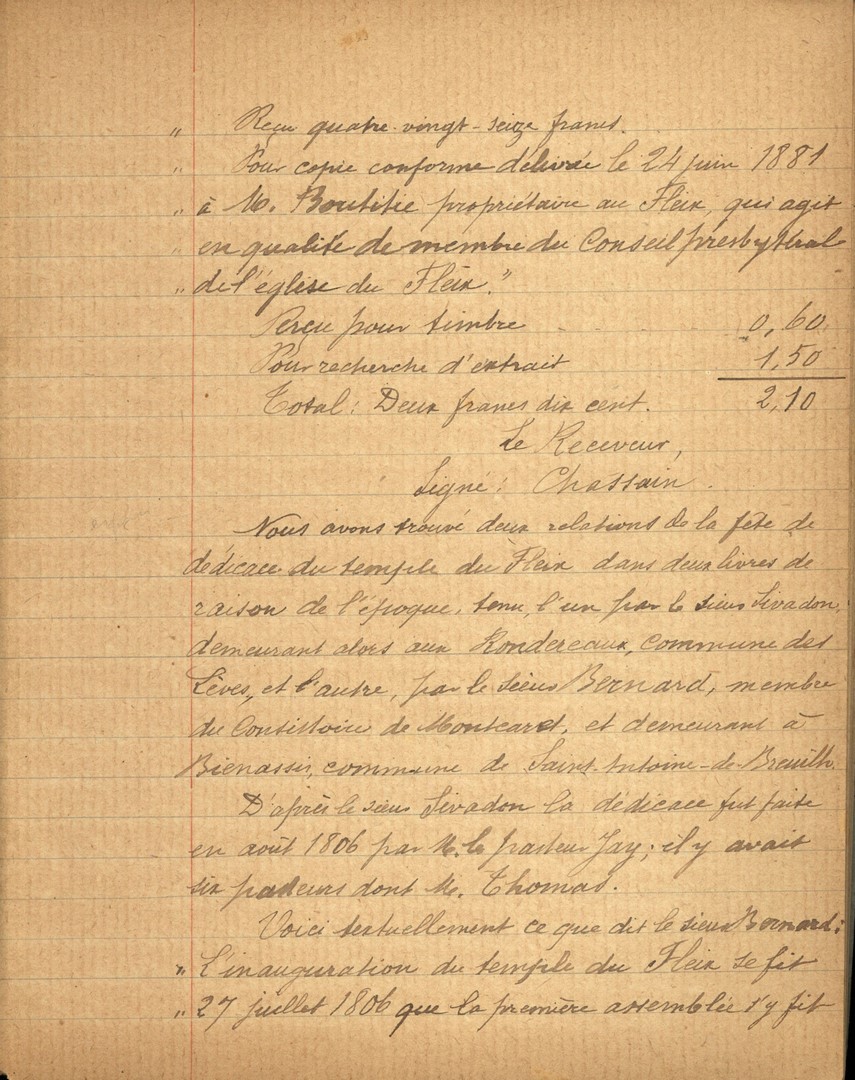 " Reçu quatre-vingt-seize francs.
" Pour copie conforme délivrée le 24 juin 1881
" à M. Boutitie propriétaire au Fleix, qui agit
" en qualité de membre du Conseil presbytéral
" de l'église du Fleix."
Perçu pour timbre 0,60
Pour recherche d'extrait 1,50
Total : Deux francs dix cent. 2,10
Le Receveur,
Signé : Chassain.
Nous avons trouvé deux relations de la fête de
dédicace du temple du Fleix dans deux livres de
raison de l'époque, tenu, l'un par le sieur Sivadon,
demeurant alors aux Rondereaux, commune des
Lèves, et l'autre, par le sieur Bernard, membre
du Consistoire de Montcaret, et demeurant à
Bienassis, commune de Saint-Antoine-de-Breuilh.
D'après le sieur Sivadon la dédicace fut faite
en août 1806 par M. le pasteur Jay ; il y avait
six pasteurs dont M. Thomas.
Voici textuellement ce que dit le sieur Bernard :
" L'inauguration du temple du Fleix se fit
" 27 juillet 1806 que la première assemblée s'y fit